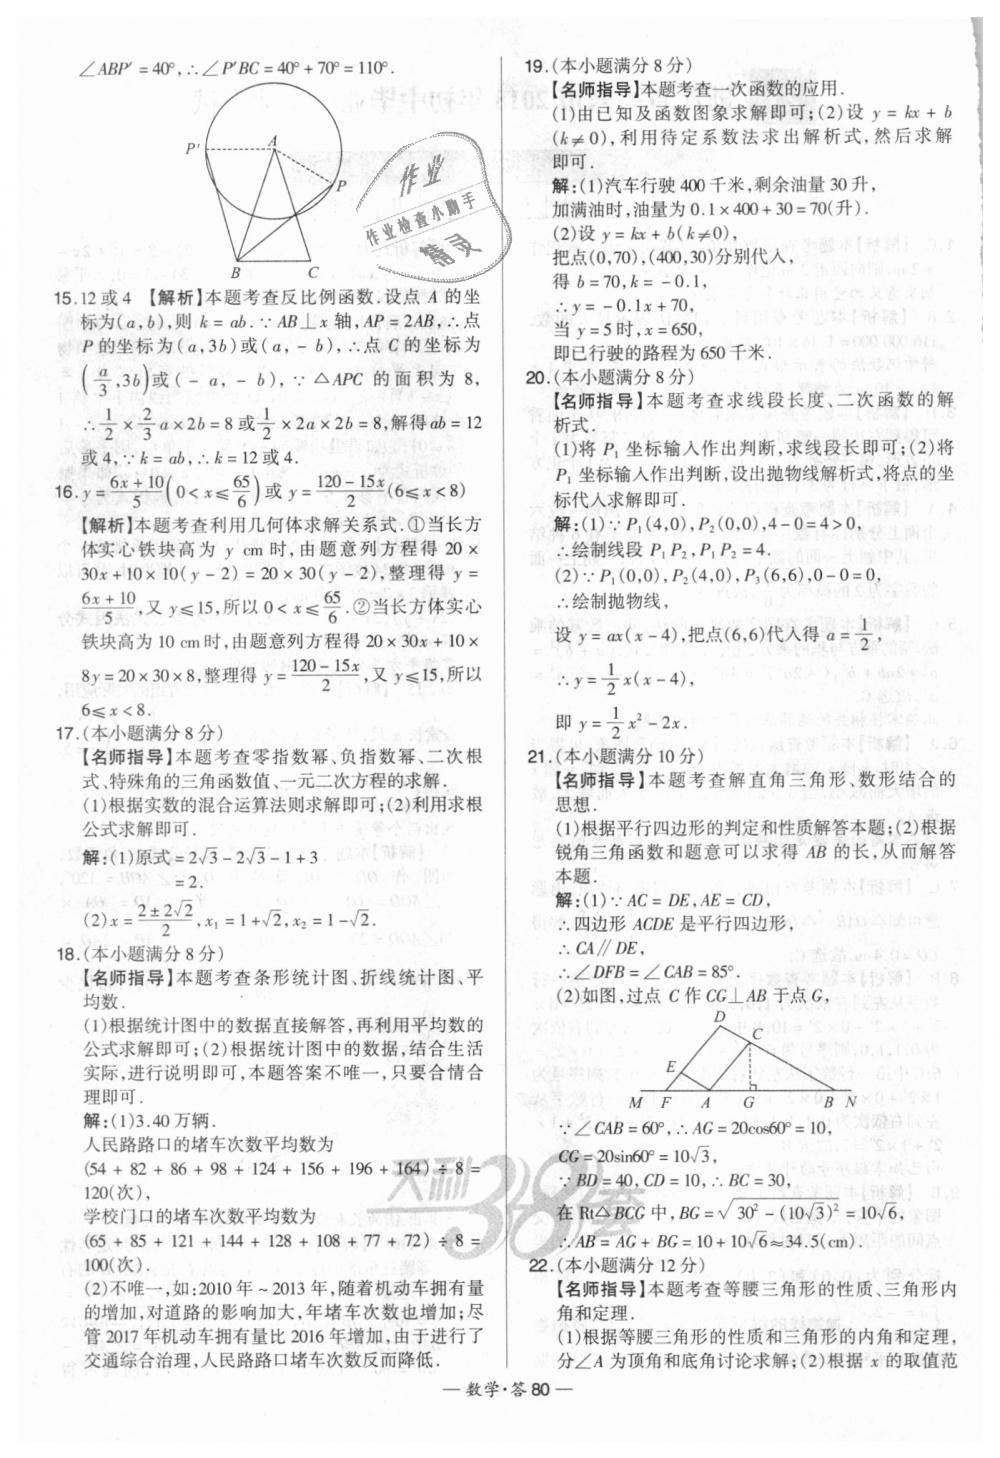 ∠ABP′ = 40°,∴∠P′BC = 40° + 70° = 110°.
P′
A
P
B
C
15.12 或 4 【解析】本题考查反比例函数.设点 A 的坐
标为(a,b),则 k = ab.∵AB⊥x 轴,AP = 2AB,∴点
P 的坐标为(a,3b)或(a, - b),∴点 C 的坐标为
(a/3,3b)或( - a, - b),∵△APC 的面积为 8,
∴1/2 × 2/3 a × 2b = 8 或 1/2 × 2a × 2b = 8,解得 ab = 12
或 4,∵k = ab,∴k = 12 或 4.
16. y = (6x + 10)/5 (0 < x ≤ 65/6) 或 y = (120 - 15x)/2 (6≤x < 8)
【解析】本题考查利用几何体求解关系式.①当长方
体实心铁块高为 y cm 时,由题意列方程得 20 ×
30x + 10 × 10(y - 2) = 20 × 30(y - 2),整理得 y =
(6x + 10)/5,又 y≤15,所以 0 < x ≤ 65/6.②当长方体实心
铁块高为 10 cm 时,由题意列方程得 20 × 30x + 10 ×
8y = 20 × 30 × 8,整理得 y = (120 - 15x)/2,又 y≤15,所以
6≤x < 8.
17.(本小题满分 8 分)
【名师指导】本题考查零指数幂、负指数幂、二次根
式、特殊角的三角函数值、一元二次方程的求解.
(1)根据实数的混合运算法则求解即可;(2)利用求根
公式求解即可.
解:(1)原式 = 2√3 - 2√3 - 1 + 3
= 2.
(2)x = (2 ± 2√2)/2, x₁ = 1 + √2, x₂ = 1 - √2.
18.(本小题满分 8 分)
【名师指导】本题考查条形统计图、折线统计图、平
均数.
(1)根据统计图中的数据直接解答,再利用平均数的
公式求解即可;(2)根据统计图中的数据,结合生活
实际,进行说明即可,本题答案不唯一,只要合情合
理即可.
解:(1)3.40 万辆.
人民路路口的堵车次数平均数为
(54 + 82 + 86 + 98 + 124 + 156 + 196 + 164) ÷ 8 =
120(次),
学校门口的堵车次数平均数为
(65 + 85 + 121 + 144 + 128 + 108 + 77 + 72) ÷ 8 =
100(次).
(2)不唯一,如:2010 年 ~ 2013 年,随着机动车拥有量
的增加,对道路的影响加大,年堵车次数也增加;尽
管 2017 年机动车拥有量比 2016 年增加,由于进行了
交通综合治理,人民路路口堵车次数反而降低.
19.(本小题满分 8 分)
【名师指导】本题考查一次函数的应用.
(1)由已知及函数图象求解即可;(2)设 y = kx + b
(k≠0),利用待定系数法求出解析式,然后求解
即可.
解:(1)汽车行驶 400 千米,剩余油量 30 升,
加满油时,油量为 0.1 × 400 + 30 = 70(升).
(2)设 y = kx + b(k≠0),
把点(0,70),(400,30)分别代入,
得 b = 70,k = - 0.1,
∴y = - 0.1x + 70,
当 y = 5 时,x = 650,
即已行驶的路程为 650 千米.
20.(本小题满分 8 分)
【名师指导】本题考查求线段长度、二次函数的解
析式.
(1)将 P₁ 坐标输入作出判断,求线段长即可;(2)将
P₁ 坐标输入作出判断,设出抛物线解析式,将点的坐
标代入求解即可.
解:(1)∵P₁(4,0),P₂(0,0),4 - 0 = 4 > 0,
∴绘制线段 P₁P₂,P₁P₂ = 4.
(2)∵P₁(0,0),P₂(4,0),P₃(6,6),0 - 0 = 0,
∴绘制抛物线,
设 y = ax(x - 4),把点(6,6)代入得 a = 1/2,
∴y = 1/2 x(x - 4),
即 y = 1/2 x² - 2x.
21.(本小题满分 10 分)
【名师指导】本题考查解直角三角形、数形结合的
思想.
(1)根据平行四边形的判定和性质解答本题;(2)根据
锐角三角函数和题意可以求得 AB 的长,从而解答
本题.
解:(1)∵AC = DE,AE = CD,
∴四边形 ACDE 是平行四边形,
∴CA∥DE,
∴∠DFB = ∠CAB = 85°.
(2)如图,过点 C 作 CG⊥AB 于点 G,
D
C
E
M F A G B N
∵∠CAB = 60°,∴AG = 20cos60° = 10,
CG = 20sin60° = 10√3,
∵BD = 40,CD = 10,∴BC = 30,
在 Rt△BCG 中,BG = √(30² - (10√3)²) = 10√6,
∴AB = AG + BG = 10 + 10√6≈34.5(cm).
22.(本小题满分 12 分)
【名师指导】本题考查等腰三角形的性质、三角形内
角和定理.
(1)根据等腰三角形的性质和三角形的内角和定理,
分∠A 为顶角和底角讨论求解;(2)根据 x 的取值范
作业
作业检查小助手
精灵
天利38套
— 数学·答 80 —